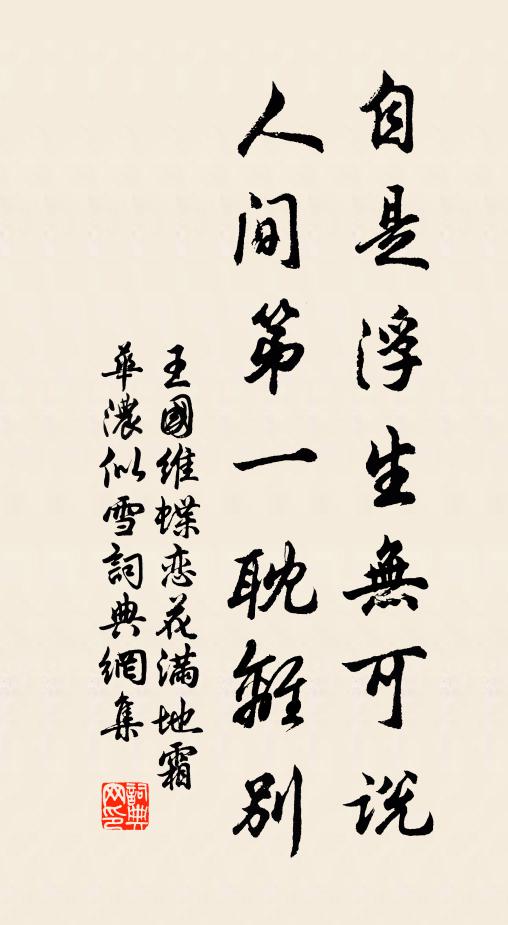 自是浮生無可說
人間第一耽離別
王國維蝶恋花滿地霜
華濃似雪詞典網集
詞典网印